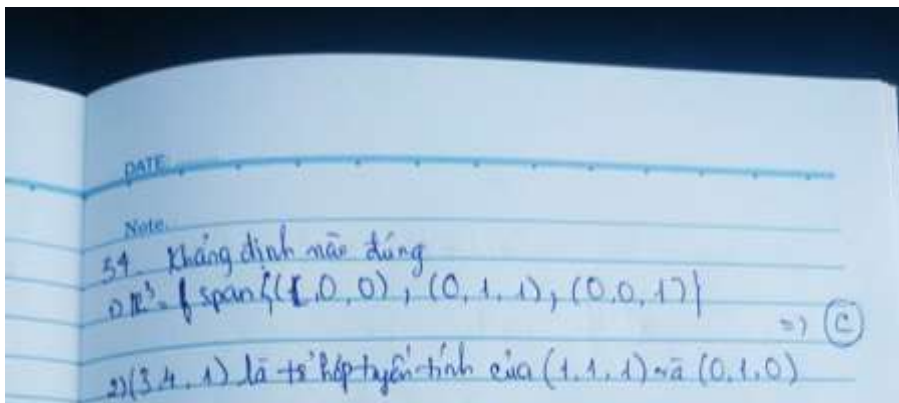 DATE
Note.
54. Khẳng định nào đúng
1) R³ = span{(1,0,0), (0,1,1), (0,0,1)}
=> C
2) (3,4,1) là tổ hợp tuyến tính của (1,1,1) và (0,1,0)